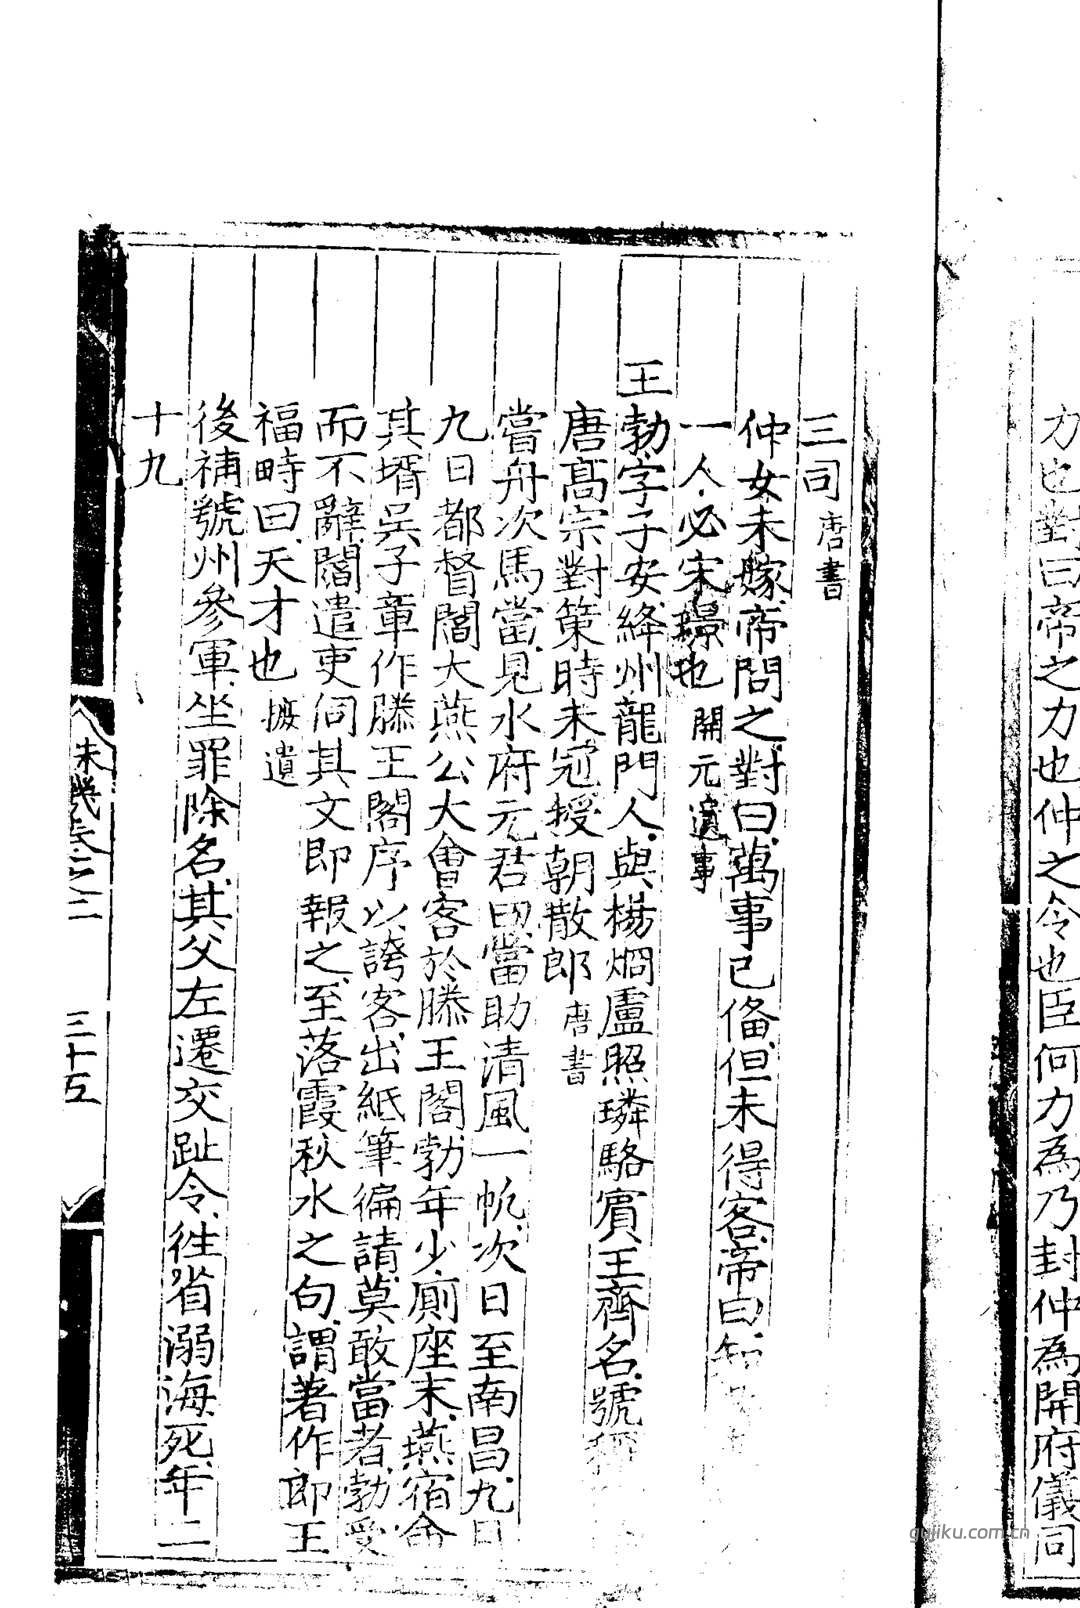 力也對曰帝之力也仲之令也臣何力為乃封仲為開府儀同
三司唐書
仲女未嫁帝問之對曰萬事已俻但未得客帝曰知
一人必宋璟也開元遺事
王勃字子安絳州龍門人與楊烱盧照鄰駱賓王齊名號
唐髙宗對策時未冠授朝散郎唐書
嘗舟次馬當見水府元君曰當助清風一帆次日至南昌九日
九日都督閻大燕公大會客於滕王閣勃年少厠座末燕宿命
其壻吳子章作滕王閣序以誇客出紙筆徧請莫敢當者勃受
而不辭閻遣吏伺其文即報之至落霞秋水之句謂著作郎王
福畤曰天才也摭遺
後補虢州參軍坐罪除名其父左遷交趾令徃省溺海死年二
十九
卷之二
三十五
gujiku.com.cn